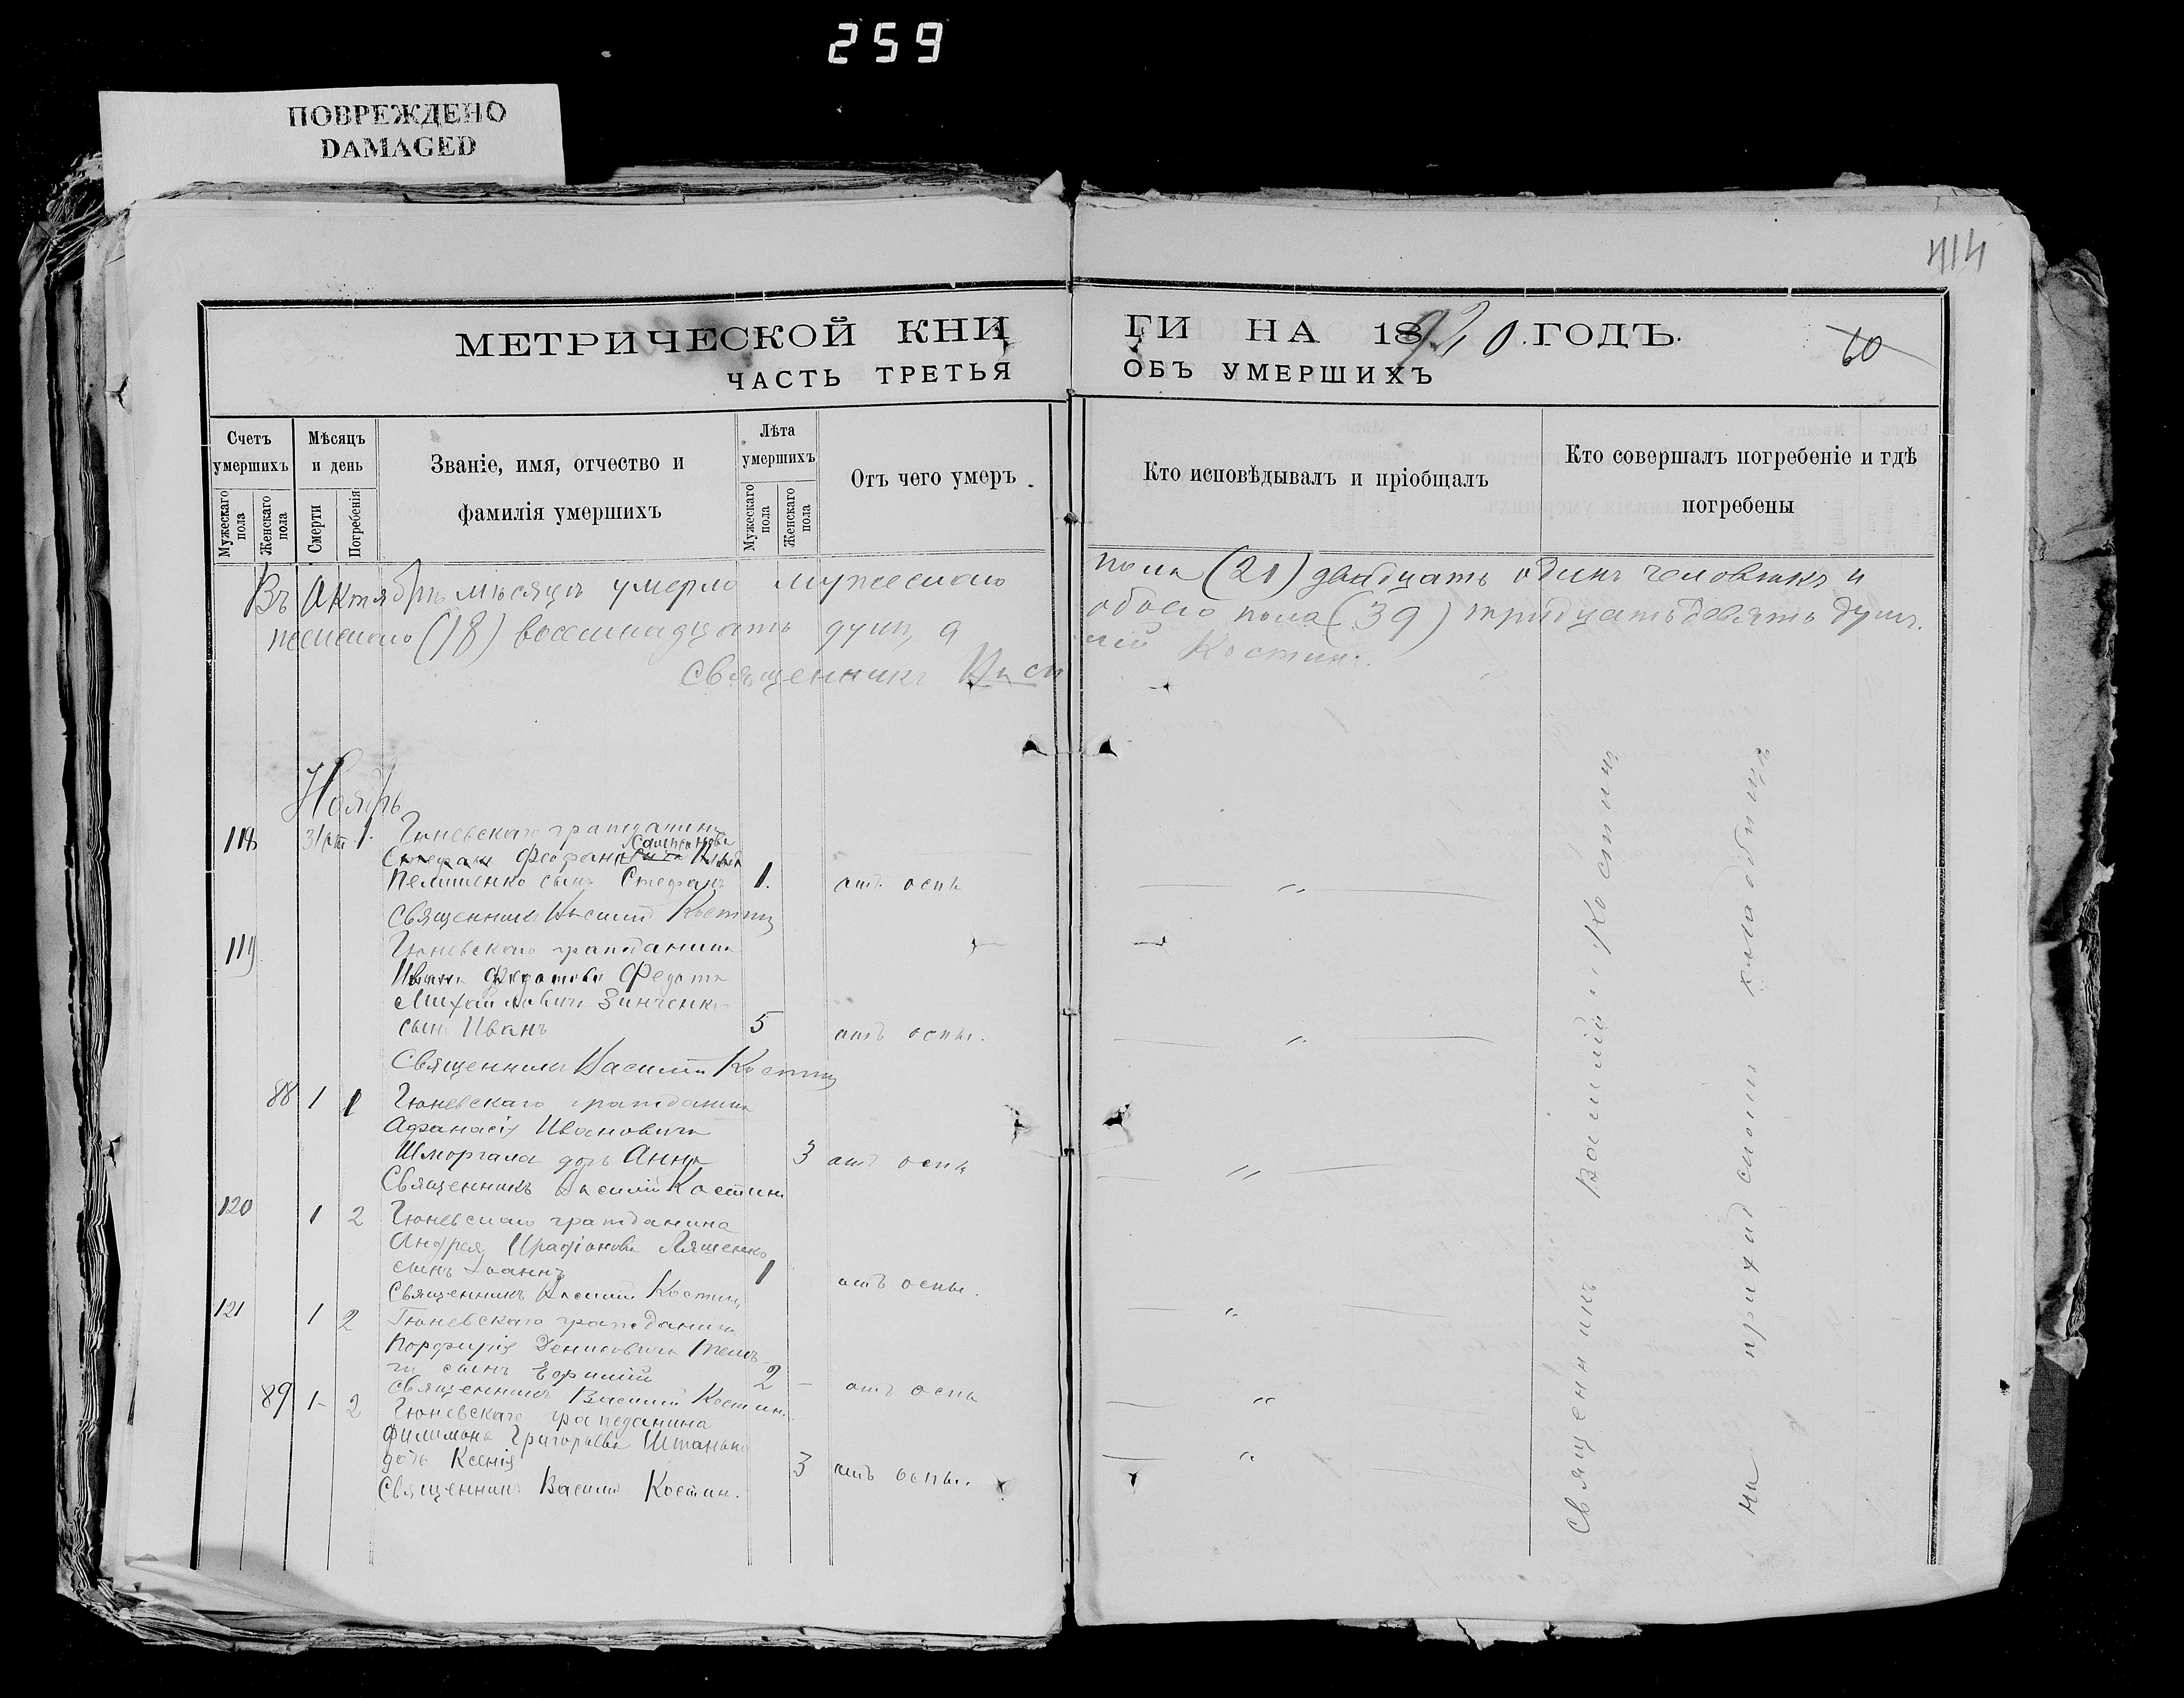 259
ПОВРЕЖДЕНО
DAMAGED
414
МЕТРИЧЕСКОЙ КНИ ГИ НА 1920 ГОДЪ.
60
ЧАСТЬ ТРЕТЬЯ ОБЪ УМЕРШИХЪ
Счетъ умершихъ
Мужескаго пола
Женскаго пола
Мѣсяцъ и день
Смерти
Погребенія
Званіе, имя, отчество и
фамилія умершихъ
Лѣта умершихъ
Мужескаго пола
Женскаго пола
Отъ чего умеръ
Кто исповѣдывалъ и пріобщалъ
Кто совершалъ погребеніе и гдѣ
погребены
Въ Октябрѣ мѣсяцѣ умерло мужескаго пола (21) двадцать одинъ человѣкъ и
женскаго (18) восемнадцать душ, а обоего пола (39) тридцать девять душъ.
Священникъ Василій Костинъ.
Ноябрь
118 31 окт 1. гражданина
Феофана
сынъ Стефанъ 1. отъ оспы
Священникъ Василій Костинъ
119 гражданина
Федота
Михайловича Зинченко
сынъ Иванъ 5 отъ оспы.
Священникъ Василій Костинъ
88 1 1 гражданина
Афанасія Ивановича
Шморгала дочь Анна 3 отъ оспы
Священникъ Василій Костинъ
120 1 2 гражданина
Андрея Ляшенко
сынъ Іоаннъ 1 отъ оспы.
Священникъ Василій Костинъ
121 1 2 гражданина
Порфирія
сынъ Ефимій 2 отъ оспы
Священникъ Василій Костинъ.
89 1 2 гражданина
Филимона Григорьева Штанько
дочь Ксенія 3 отъ оспы.
Священникъ Василій Костин.
Священникъ Василій Костинъ
На приходскомъ кладбищѣ